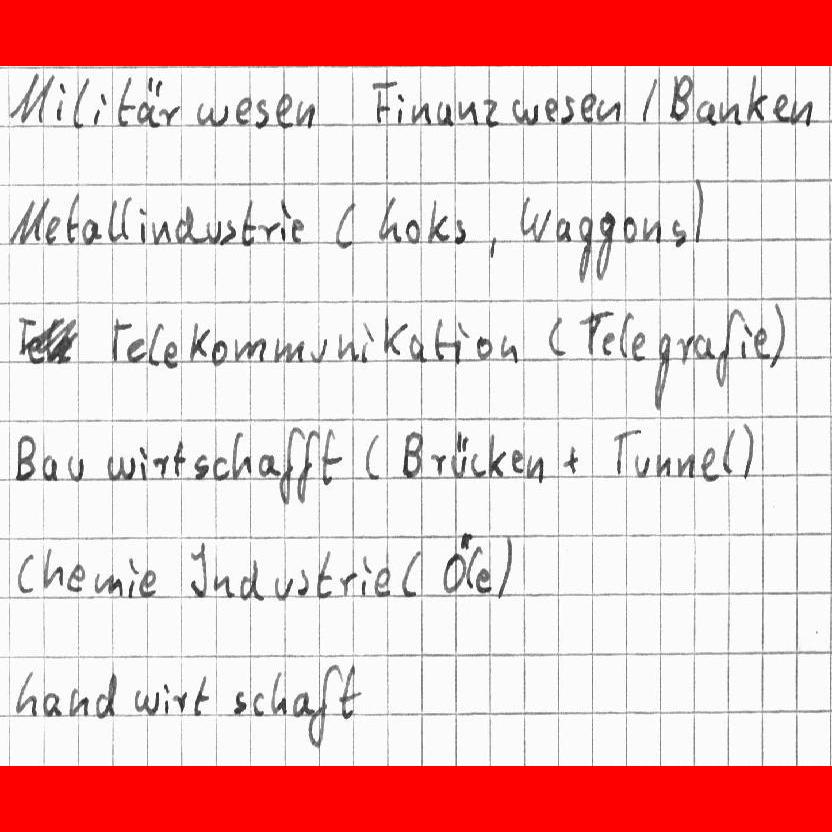 Militärwesen Finanzwesen / Banken
Metallindustrie ( Loks, Waggons)
Telekommunikation ( Telegrafie)
Bauwirtschafft ( Brücken + Tunnel)
Chemie Industrie ( Öle)
Landwirtschaft